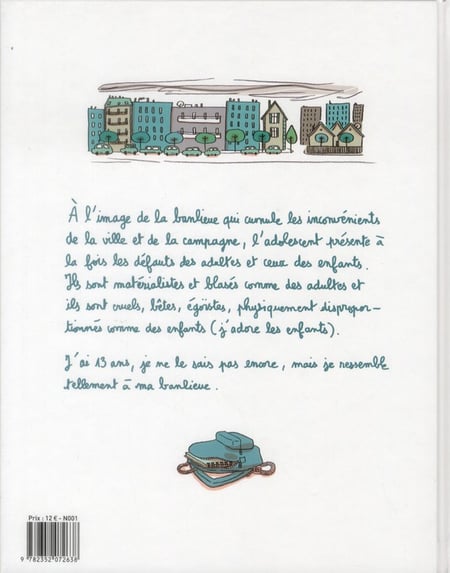 À l'image de la banlieue qui cumule les inconvénients
de la ville et de la campagne, l'adolescent présente à
la fois les défauts des adultes et ceux des enfants.
Ils sont matérialistes et blasés comme des adultes et
ils sont cruels, bêtes, égoïstes, physiquement dispropor-
tionnés comme des enfants (j'adore les enfants).
J'ai 13 ans, je ne le sais pas encore, mais je ressemble
tellement à ma banlieue.
Prix : 12 € - N001
9 782352 072638